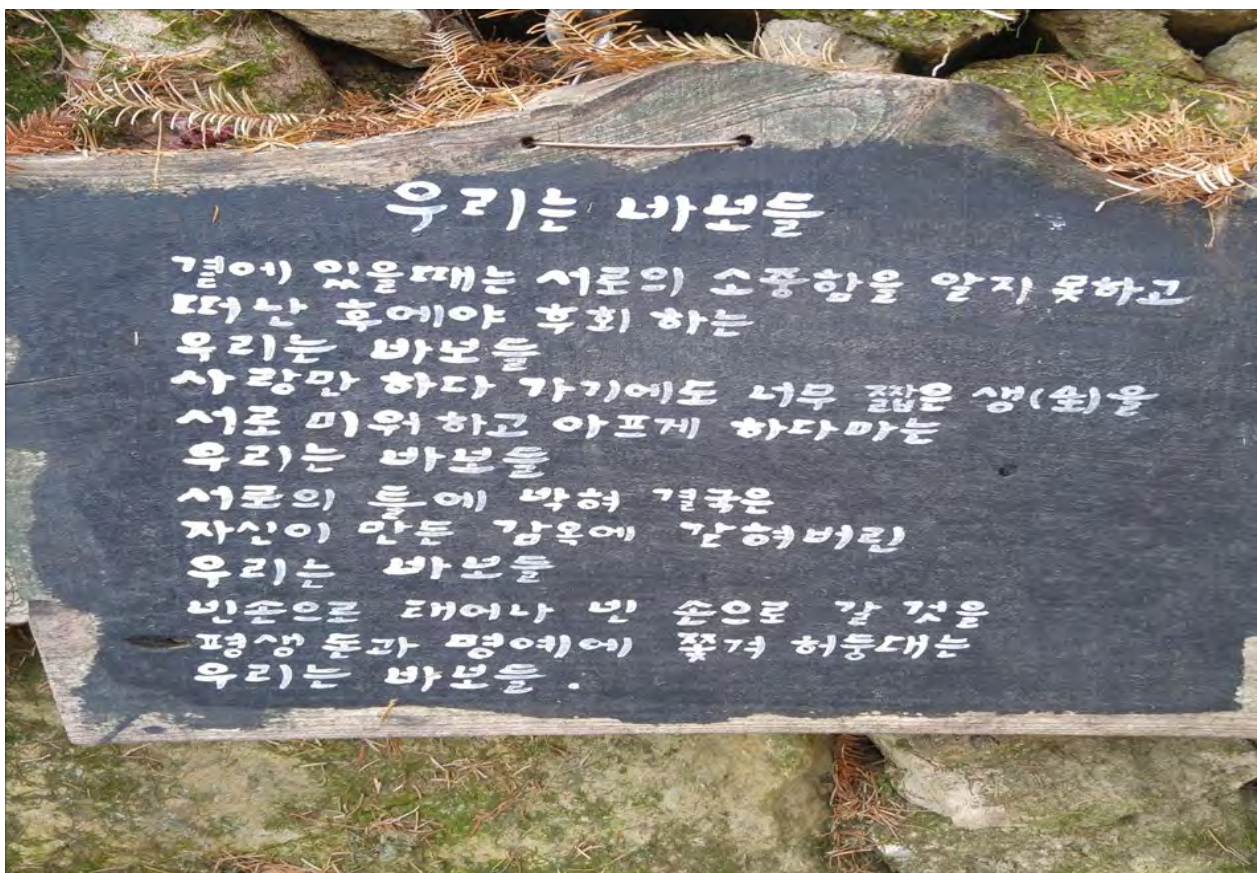 우리는 바보들
곁에 있을때는 서로의 소중함을 알지 못하고
떠난 후에야 후회 하는
우리는 바보들
사랑만 하다 가기에도 너무 짧은 생(生)을
서로 미워하고 아프게 하다마는
우리는 바보들
서로의 틀에 박혀 결국은
자신이 만든 감옥에 갇혀버린
우리는 바보들
빈손으로 태어나 빈 손으로 갈 것을
평생 돈과 명예에 쫓겨 허둥대는
우리는 바보들.